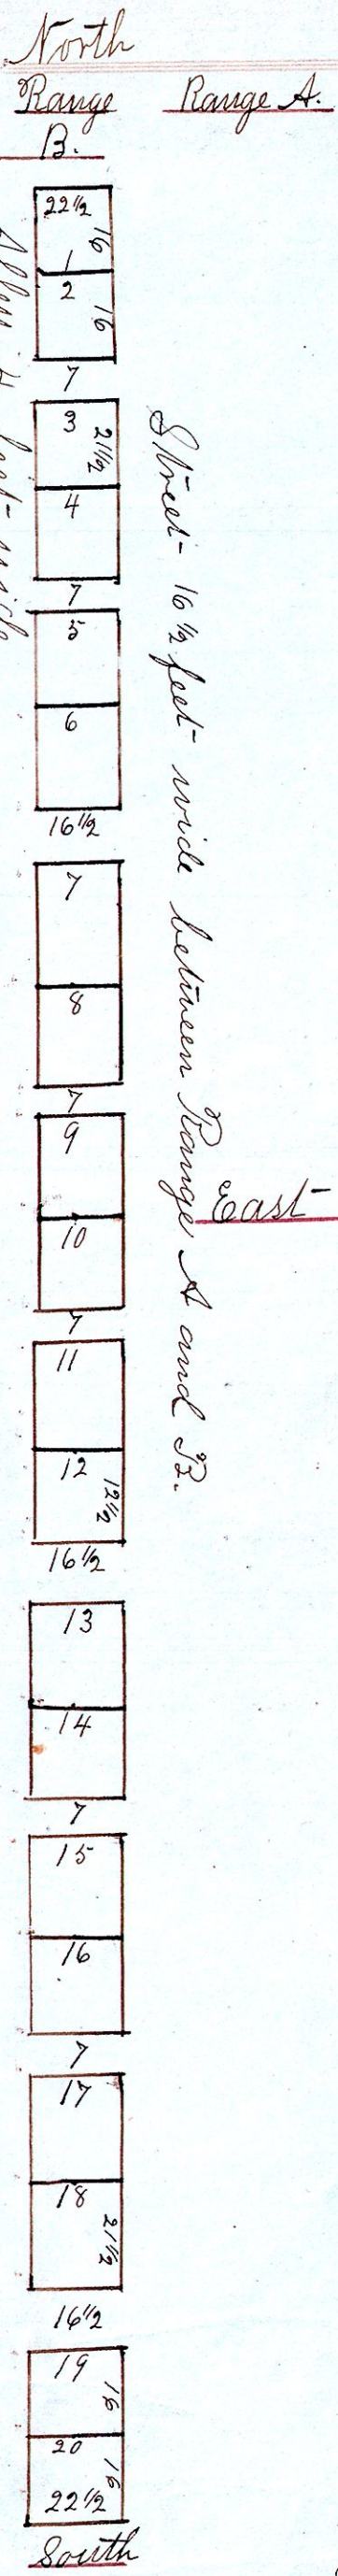 North
Range Range A.
B.
22 1/2
16
1
2
16
7
3
21 1/2
4
7
5
6
16 1/2
7
8
7
9
10
7
11
12
12 1/2
16 1/2
13
14
7
15
16
7
17
18
21 1/2
16 1/2
19
16
20
16
22 1/2
South
Street 16 1/2 feet wide between Range A and B.
East
feet wide